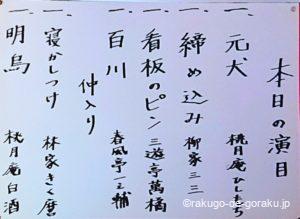 本日の演目
一、元犬 桃月庵ひしもち
一、締め込み 柳家三三
一、看板のピン 三遊亭萬橘
一、百川 春風亭一之輔
仲入り
一、寝かしつけ 林家きく麿
一、明烏 桃月庵白酒
©rakugo-de-goraku.jp